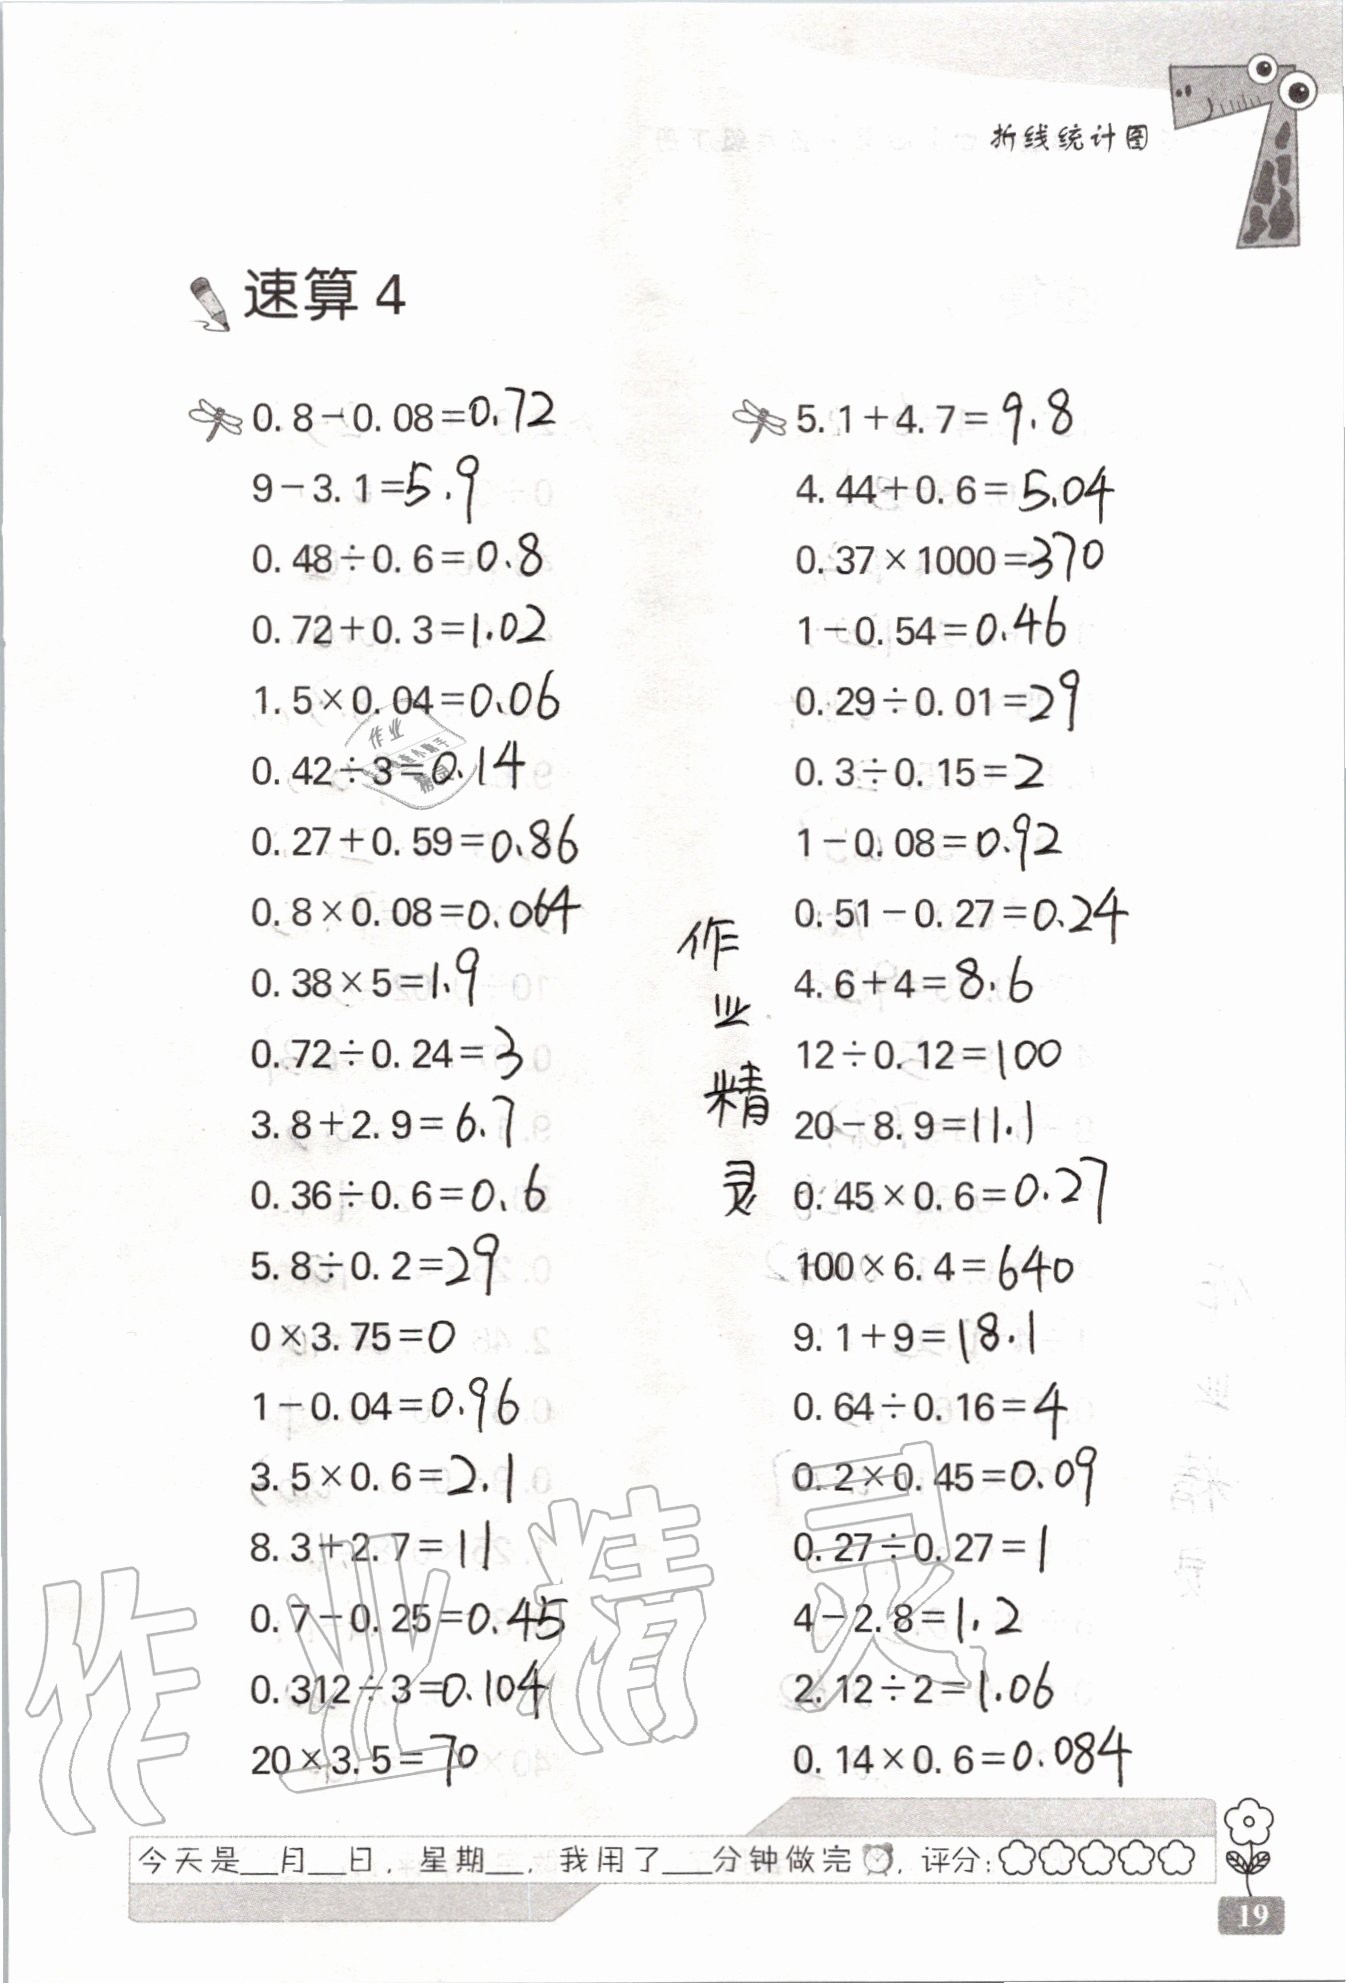 折线统计图
速算 4
0.8-0.08=0.72
9-3.1=5.9
0.48÷0.6=0.8
0.72+0.3=1.02
1.5×0.04=0.06
0.42÷3=0.14
0.27+0.59=0.86
0.8×0.08=0.064
0.38×5=1.9
0.72÷0.24=3
3.8+2.9=6.7
0.36÷0.6=0.6
5.8÷0.2=29
0×3.75=0
1-0.04=0.96
3.5×0.6=2.1
8.3+2.7=11
0.7-0.25=0.45
0.312÷3=0.104
20×3.5=70
5.1+4.7=9.8
4.44+0.6=5.04
0.37×1000=370
1-0.54=0.46
0.29÷0.01=29
0.3÷0.15=2
1-0.08=0.92
0.51-0.27=0.24
4.6+4=8.6
12÷0.12=100
20-8.9=11.1
0.45×0.6=0.27
100×6.4=640
9.1+9=18.1
0.64÷0.16=4
0.2×0.45=0.09
0.27÷0.27=1
4-2.8=1.2
2.12÷2=1.06
0.14×0.6=0.084
作业精灵
作业
精灵
作业精灵
今天是___月___日，星期___，我用了___分钟做完，评分：
19